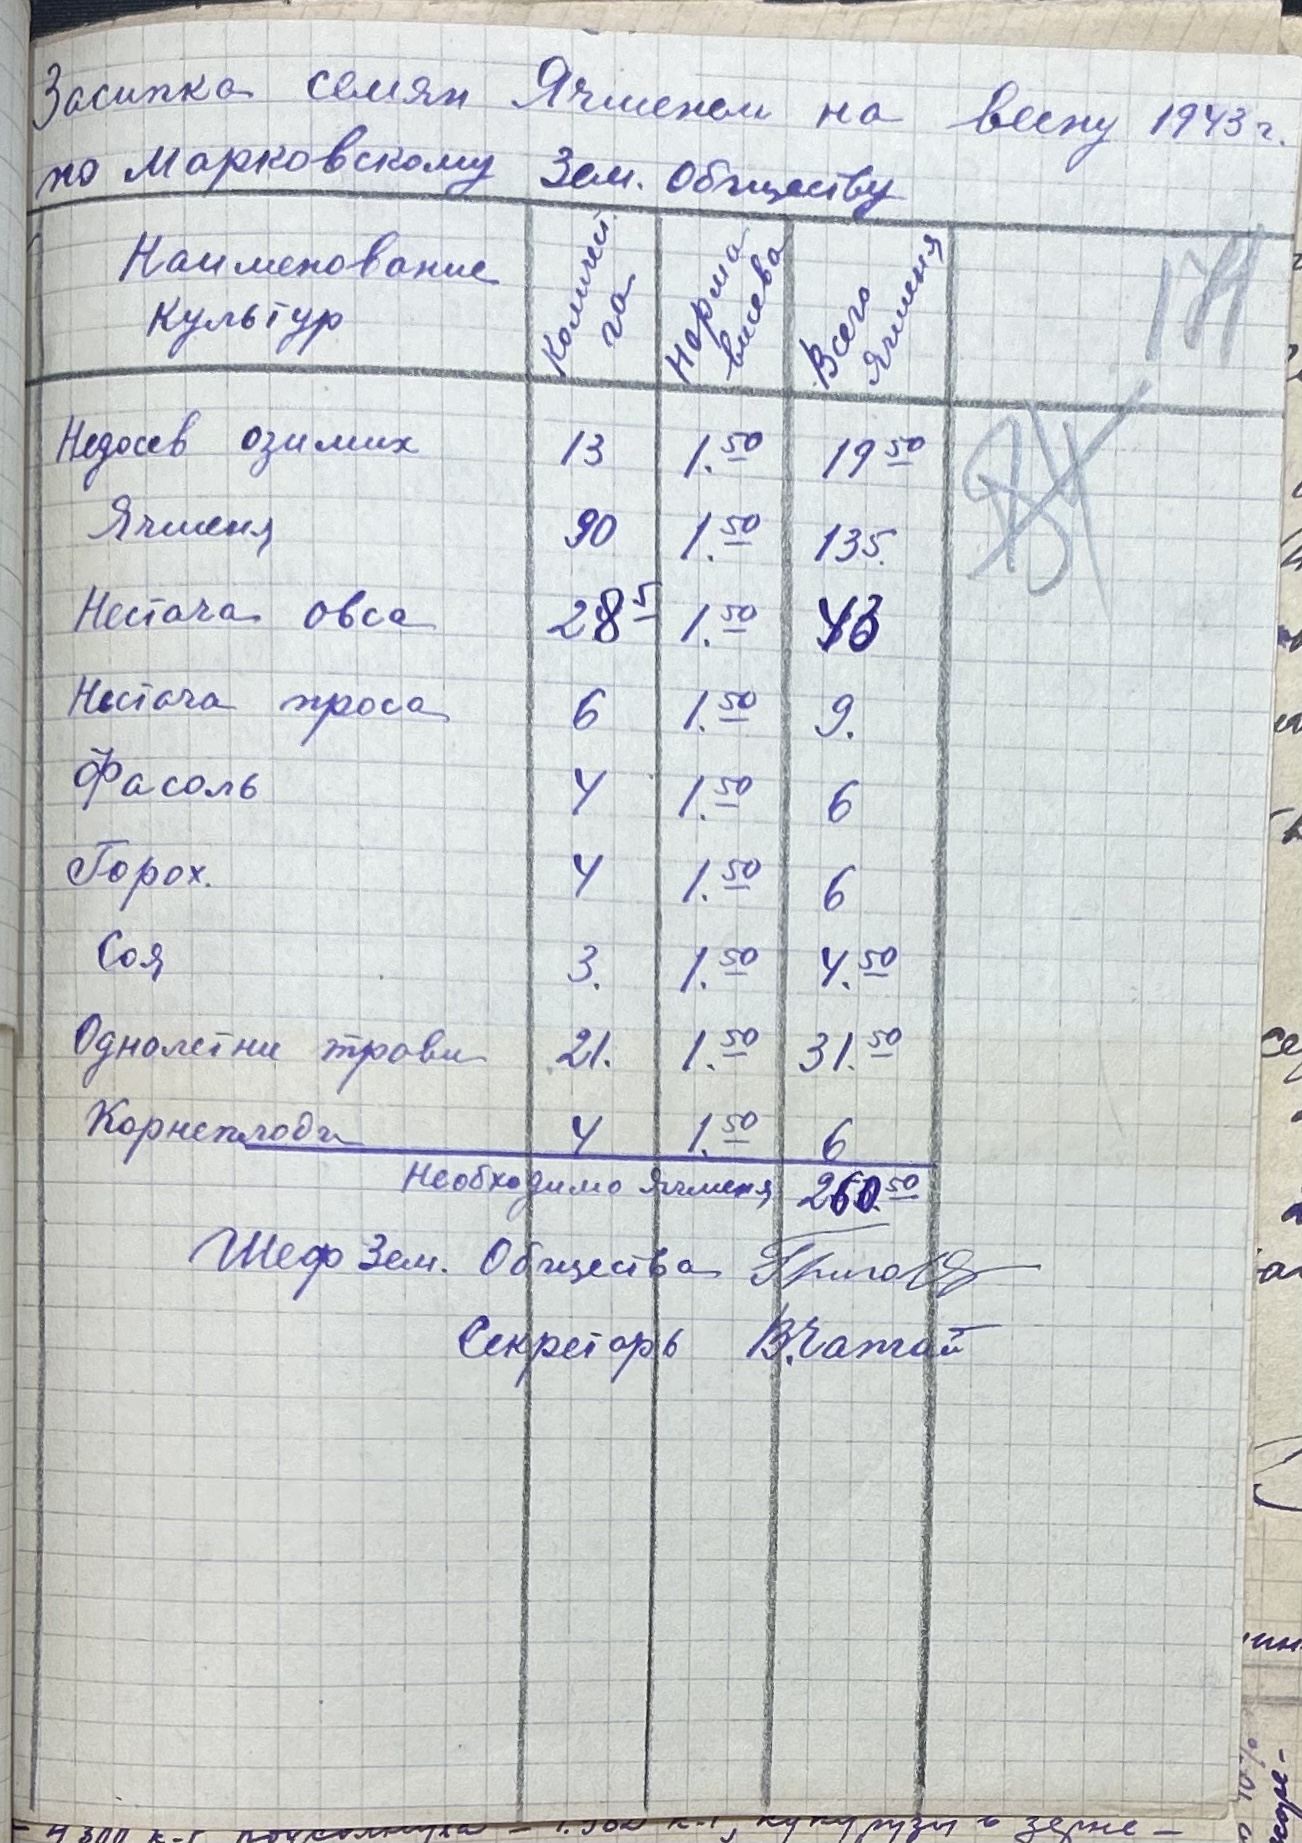 Засипка семян Ячменем на весну 1943 г.
по Марковскому Зем. Обществу
Наименование Культур
Количест га
Норма висева
Всего Ячменя
174
Недосев озимих 13 1.50 19 50
Ячменя 90 1.50 135.
Нестача овса 28 5 1.50 43
Нестача проса 6 1.50 9.
Фасоль 4 1.50 6
Горох. 4 1.50 6
Соя 3. 1.50 4.50
Однолетни трави 21. 1.50 31.50
Корнеплоди 4 1.50 6
Необходимо Ячменя 260.50
Шеф Зем. Общества
Секретарь В.Чапай